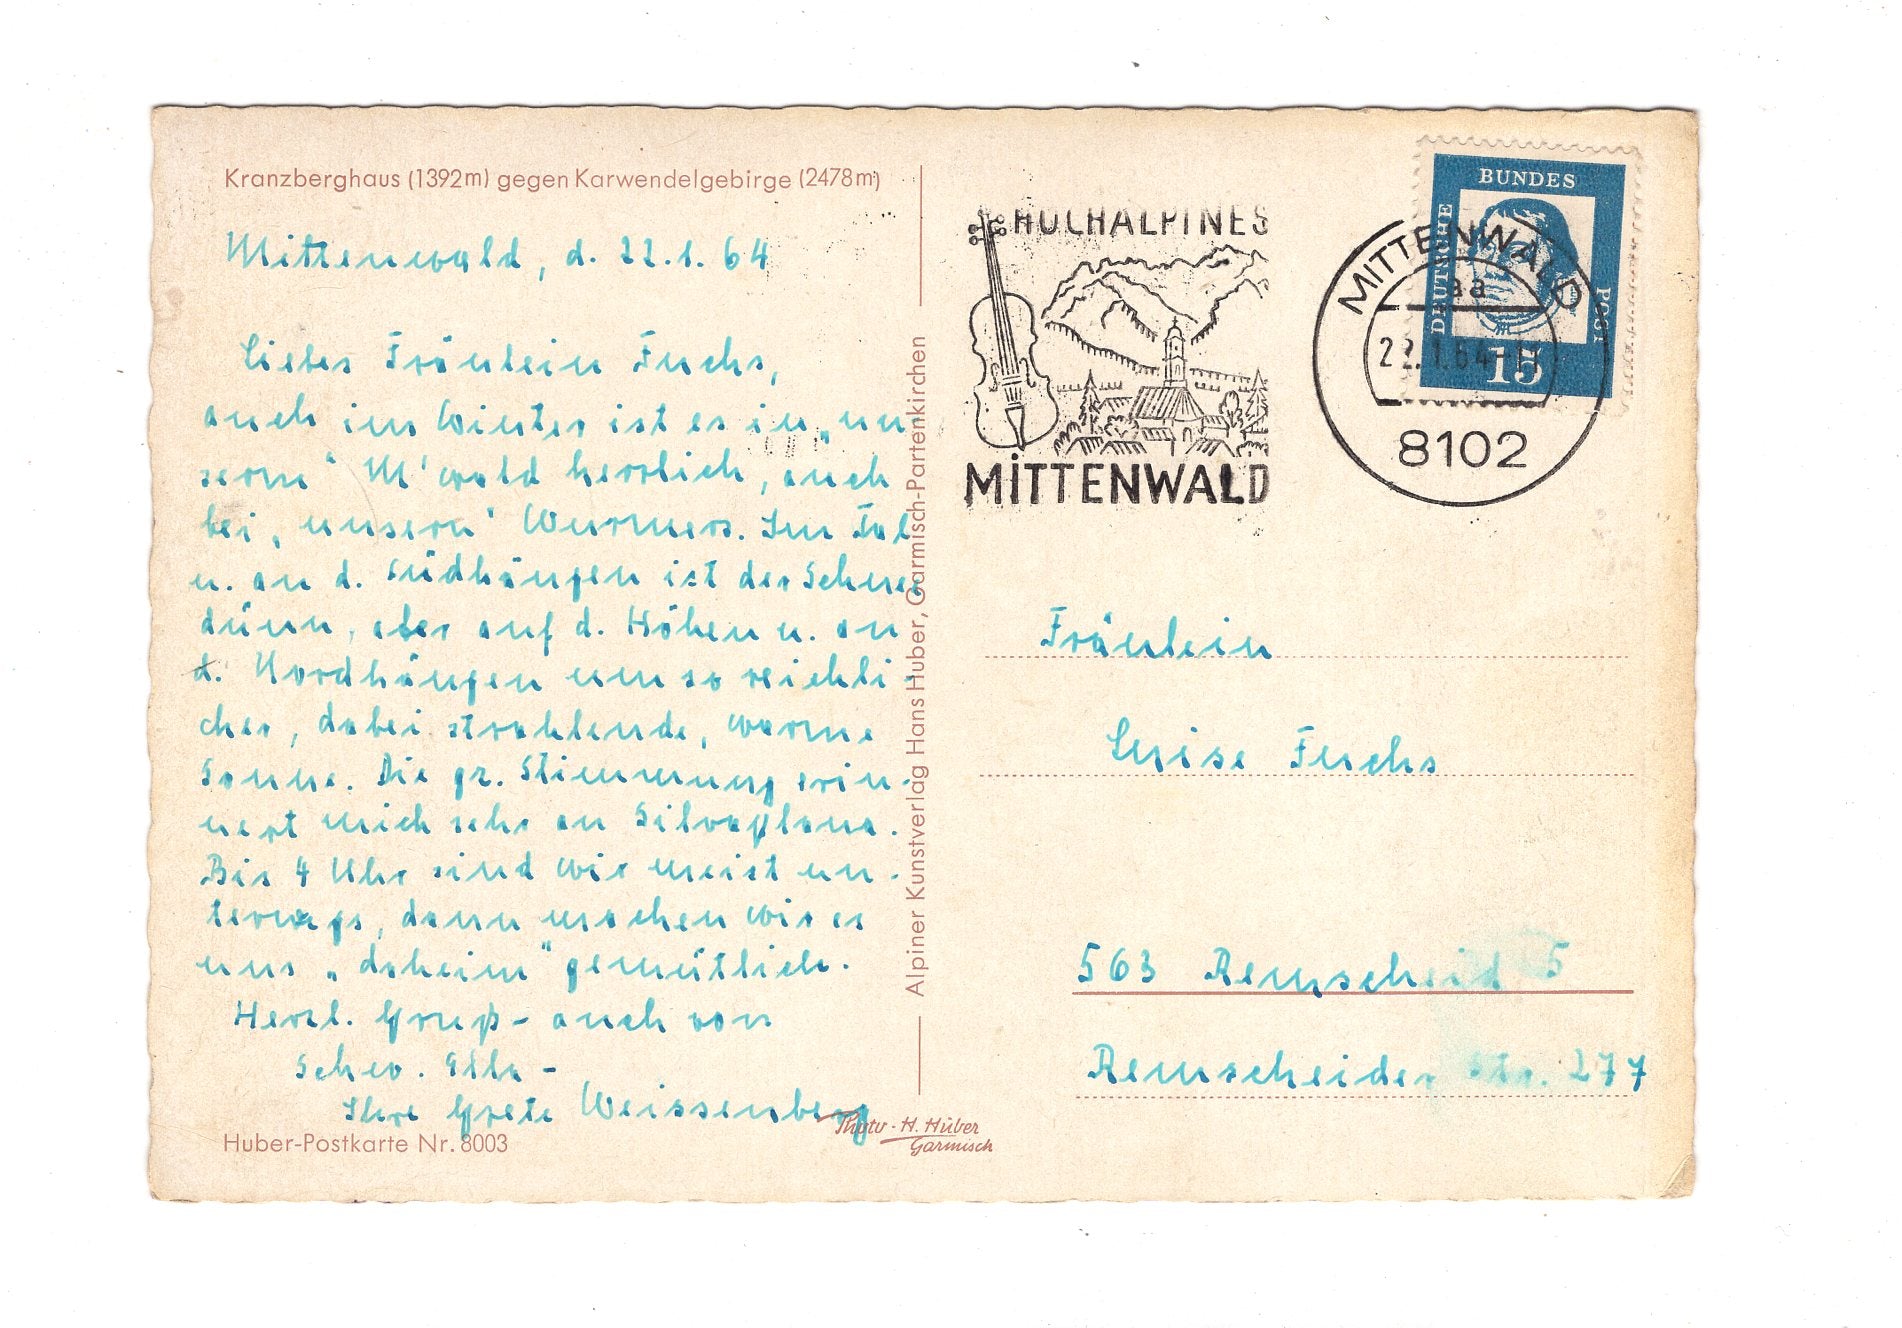 Kranzberghaus (1392m) gegen Karwendelgebirge (2478m)
Mittenwald, d. 22.1.64
Liebes Fräulein Fuchs,
auch im Winter ist es in „un
serm“ M'wald herrlich, auch
bei „unsern“ Wurmers. Im Tal
u. an d. Südhängen ist der Schnee
dünn, aber auf d. Höhen u. an
d. Nordhängen um so reichli-
cher, dabei strahlende, warme
Sonne. Die gz. Stimmung erin-
nert mich sehr an Silvaplana.
Bis 4 Uhr sind wir meist un-
terwegs, dann machen wir es
uns „daheim“ gemütlich.
Herzl. Gruß - auch von
Schw. Ella -
Ihre Grete Weissenberg
Huber-Postkarte Nr. 8003
Alpiner Kunstverlag Hans Huber, Garmisch-Partenkirchen
Photo - H. Huber
Garmisch
HOCHALPINES
MITTENWALD
MITTENWALD
aa
22.1.64-17
8102
BUNDES
DEUTSCHE
POST
15
Fräulein
Luise Fuchs
563 Remscheid 5
Remscheider Str. 277